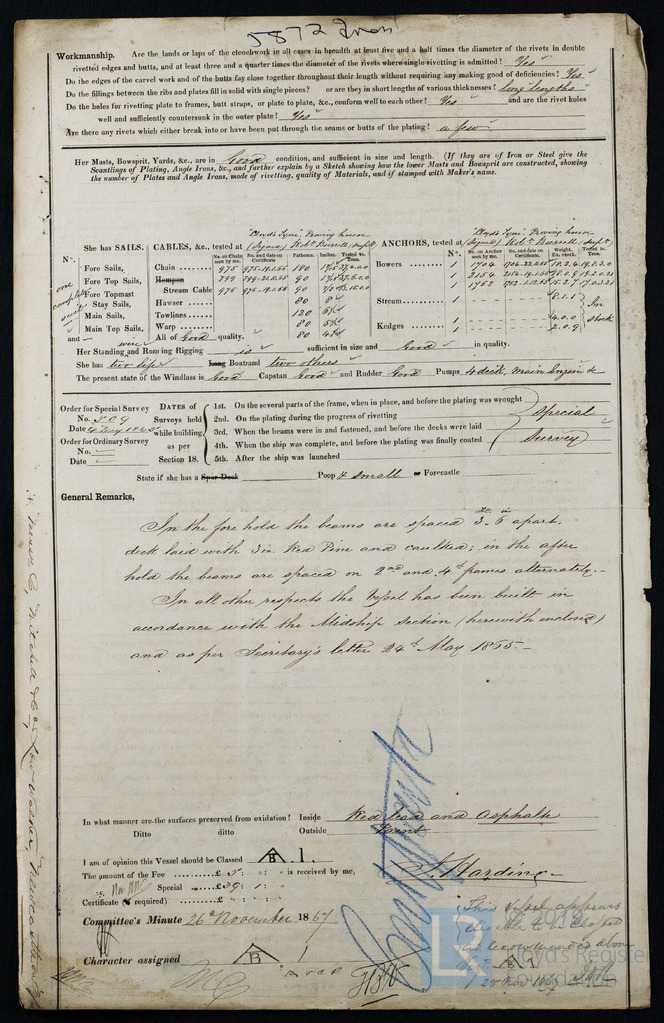 5872 Iron
Workmanship. Are the lands or laps of the clenchwork in all cases in breadth at least five and a half times the diameter of the rivets in double
rivetted edges and butts, and at least three and a quarter times the diameter of the rivets where single rivetting is admitted? Yes
Do the edges of the carvel work and of the butts fay close together throughout their length without requiring any making good of deficiencies? Yes
Do the fillings between the ribs and plates fill in solid with single pieces? or are they in short lengths of various thicknesses? long lengths
Do the holes for rivetting plate to frames, butt straps, or plate to plate, &c., conform well to each other? Yes and are the rivet holes
well and sufficiently countersunk in the outer plate? Yes
Are there any rivets which either break into or have been put through the seams or butts of the plating? a few
Her Masts, Bowsprit, Yards, &c., are in Good condition, and sufficient in size and length. (If they are of Iron or Steel give the
Scantlings of Plating, Angle Irons, &c., and further explain by a Sketch showing how the lower Masts and Bowsprit are constructed, showing
the number of Plates and Angle Irons, mode of rivetting, quality of Materials, and if stamped with Maker's name.
Lloyd's Tyne Proving house
Lloyd's Tyne Proving house
She has SAILS. CABLES, &c., tested at (Signed) Robt. Burrell Supt. ANCHORS, tested at (Signed) Robt. Burrell Supt.
N°. No. on Chain seen by me. No. and date on Certificate Fathoms. Inches. Tested to Tons. N°. No. on Anchor seen by me. No. and date on Certificate. Weight. Ex. stock. Tested to. Tons.
one complete suit and
Fore Sails, Chain 975 180 Bowers 1 1704 18.2.4
Fore Top Sails, Hempen 799 90 1 2154
Fore Topmast Stream Cable 976 90 1 1762 15.2.7
Stay Sails, Hawser 80 8 Stream 1 8.1.1 In
Main Sails, Towlines 120 1 4.0.0 stock
Main Top Sails, Warp 80 Kedges 1 2.0.9
and wire All of Good quality. 80
Her Standing and Running Rigging is sufficient in size and Good in quality.
She has two life Long Boat and two others
The present state of the Windlass is Good Capstan Good and Rudder Good Pumps 4 deck, main Engine &
Order for Special Survey No. 509 Date 4 May 1865
Order for Ordinary Survey No. Date
DATES of Surveys held while building as per Section 18.
1st. On the several parts of the frame, when in place, and before the plating was wrought
2nd. On the plating during the progress of rivetting
3rd. When the beams were in and fastened, and before the decks were laid
4th. When the ship was complete, and before the plating was finally coated
5th. After the ship was launched
Special
Survey
State if she has a Spar Deck Poop & small or Forecastle
General Remarks,
In the fore hold the beams are spaced 3ft 6in apart.
deck laid with 3 in Red Pine and caulked; in the after
hold the beams are spaced on 2nd and 4th frames alternately.-
In all other respects the vessel has been built in
accordance with the Midship section (herewith enclosed)
and as per Secretary's letter 24th May 1865.-
Messrs C. Mitchell & Co, Low Walker, Newcastle
In what manner are the surfaces preserved from oxidation? Inside Red lead and Asphalte
Ditto ditto Outside Paint
I am of opinion this Vessel should be Classed B 1.
The amount of the Fee £5 : : is received by me,
Special £39 : 1 : J. Harding
Certificate (if required) £ : :
Committee's Minute 26th November 1867
Character assigned B 1
This vessel appears
eligible to be classed
as recommended above
B 1
25 Nov 1867
© 2019
Lloyd's Register
Foundation